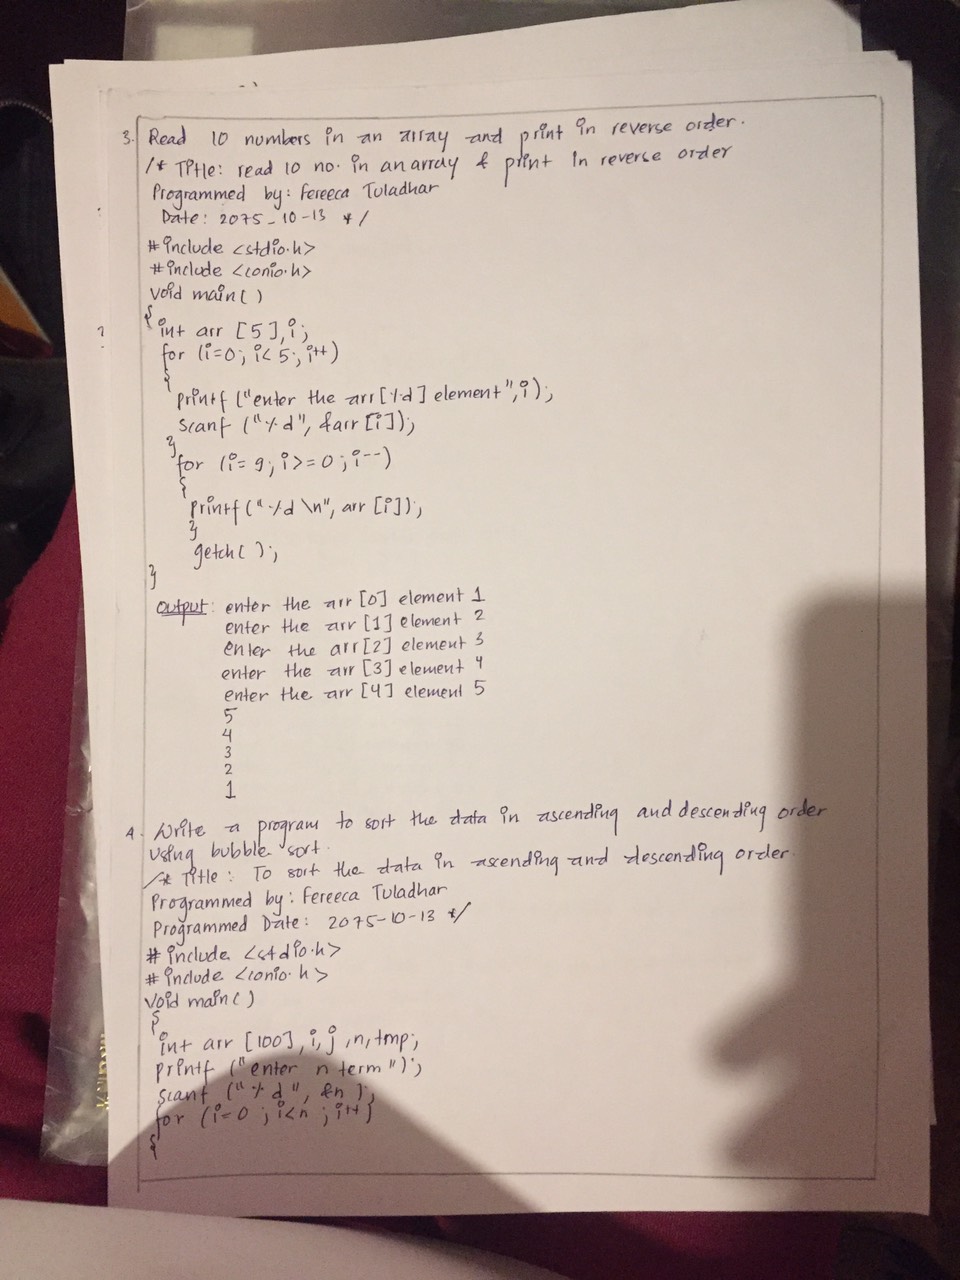 3. Read 10 numbers in an array and print in reverse order.
/* Title: read 10 no. in an array & print in reverse order
Programmed by: Fereeca Tuladhar
Date: 2075-10-13 */
#include <stdio.h>
#include <conio.h>
void main()
{
int arr [5], i;
for (i=0; i<5; i++)
{
printf ("enter the arr[%d] element", i);
scanf ("%d", &arr [i]);
}
for (i=9; i>=0; i--)
{
printf ("%d \n", arr [i]);
}
getch( );
}
Output: enter the arr [0] element 1
enter the arr [1] element 2
enter the arr [2] element 3
enter the arr [3] element 4
enter the arr [4] element 5
5
4
3
2
1
4. Write a program to sort the data in ascending and descending order
using bubble sort.
/* Title: To sort the data in ascending and descending order.
Programmed by: Fereeca Tuladhar
Programmed Date: 2075-10-13 */
#include <stdio.h>
#include <conio.h>
void main()
{
int arr [100], i, j, n, tmp;
printf ("enter n term");
scanf ("%d", &n);
for (i=0; i<n; i++)
{